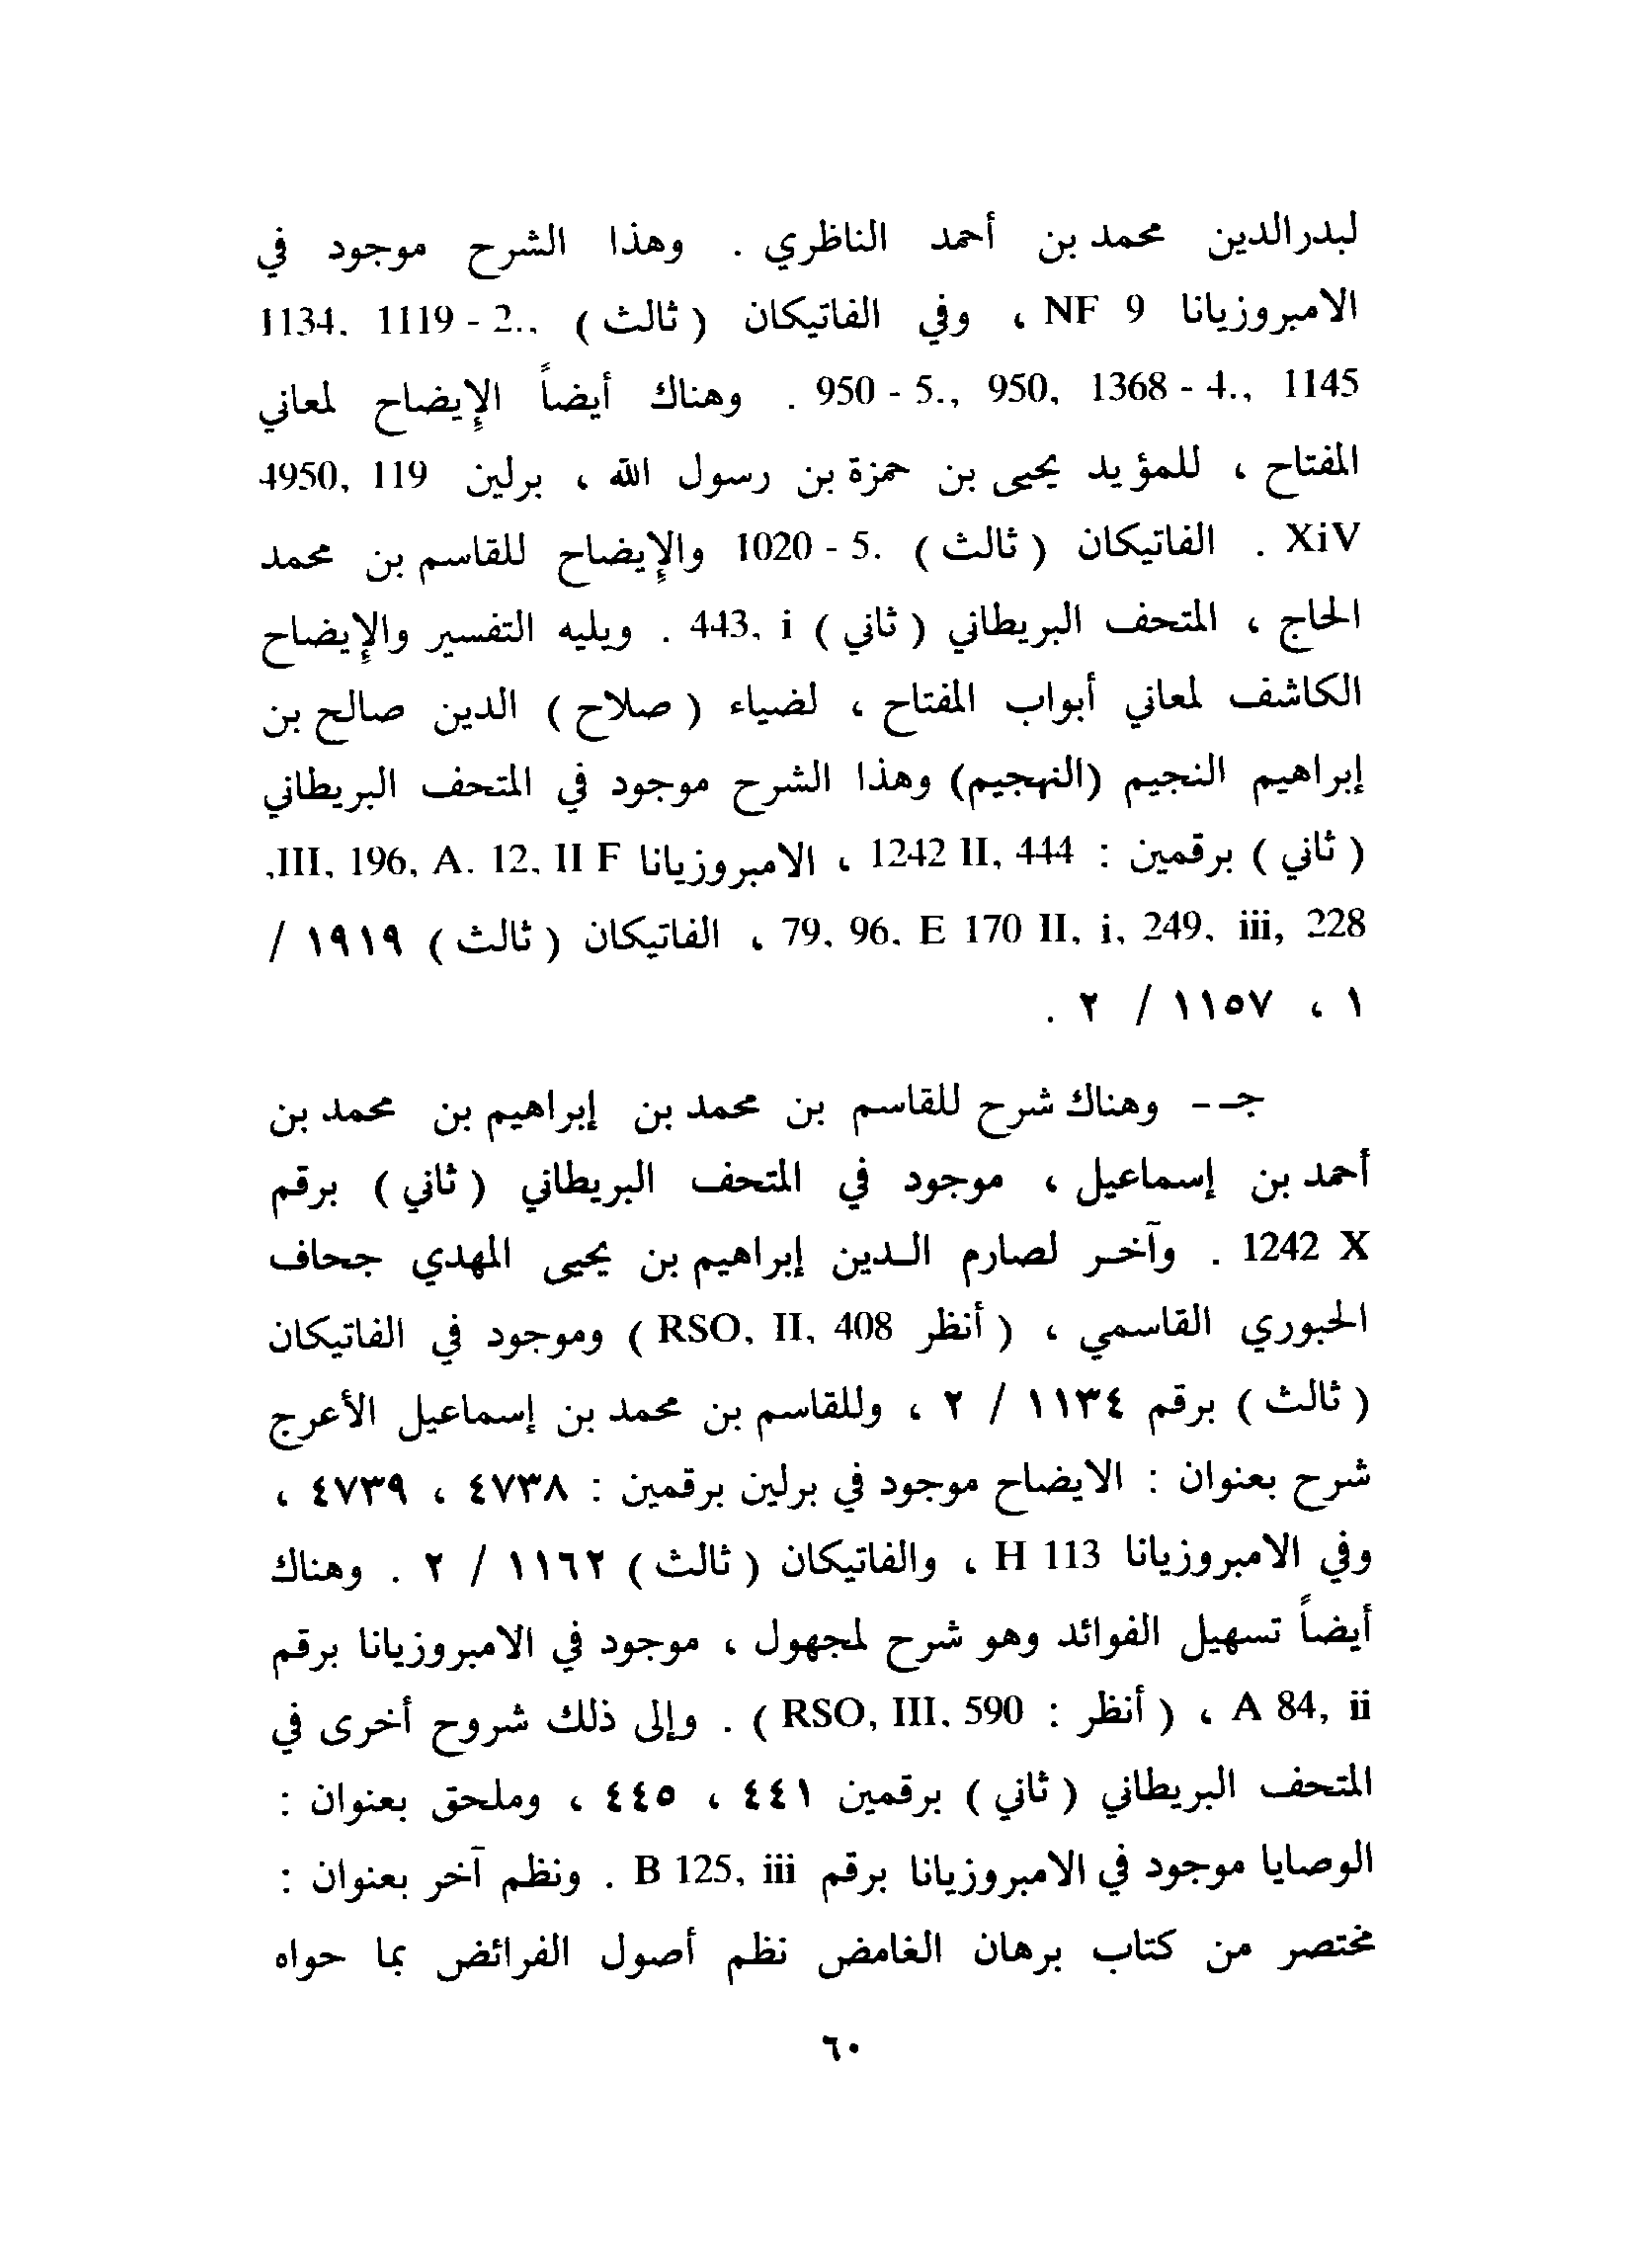 لبدرالدين محمد بن أحمد الناظري . وهذا الشرح موجود في
الامبروزيانا NF 9 ، وفي الفاتيكان ( ثالث ) 1134. 1119 - 2..
950 - 5., 950, 1368 - 4., 1145 . وهناك أيضاً الإيضاح لمعاني
المفتاح ، للمؤيد يحيى بن حمزة بن رسول الله ، برلين 4950, 119
XiV . الفاتيكان ( ثالث ) 1020 - 5. والإيضاح للقاسم بن محمد
الحاج ، المتحف البريطاني ( ثاني ) 443, i . ويليه التفسير والإيضاح
الكاشف لمعاني أبواب المفتاح ، لضياء ( صلاح ) الدين صالح بن
إبراهيم النجيم (النهجيم) وهذا الشرح موجود في المتحف البريطاني
( ثاني ) برقمين : 1242 II, 444 ، الامبروزيانا III, 196, A. 12, II F,
79, 96. E 170 II, i, 249, iii, 228 ، الفاتيكان ( ثالث ) ١٩١٩ /
١ ، ١١٥٧ / ٢ .
جـ - وهناك شرح للقاسم بن محمد بن إبراهيم بن محمد بن
أحمد بن إسماعيل ، موجود في المتحف البريطاني ( ثاني ) برقم
1242 X . وآخر لصارم الدين إبراهيم بن يحيى المهدي جحاف
الحبوري القاسمي ، ( أنظر RSO, II, 408 ) وموجود في الفاتيكان
( ثالث ) برقم ١١٣٤ / ٢ ، وللقاسم بن محمد بن إسماعيل الأعرج
شرح بعنوان : الايضاح موجود في برلين برقمين : ٤٧٣٨ ، ٤٧٣٩ ،
وفي الامبروزيانا H 113 ، والفاتيكان ( ثالث ) ١١٦٢ / ٢ . وهناك
أيضاً تسهيل الفوائد وهو شرح لمجهول ، موجود في الامبروزيانا برقم
A 84, ii ، ( أنظر : RSO, III. 590 ) . وإلى ذلك شروح أخرى في
المتحف البريطاني ( ثاني ) برقمين ٤٤١ ، ٤٤٥ ، وملحق بعنوان :
الوصايا موجود في الامبروزيانا برقم B 125, iii . ونظم آخر بعنوان :
مختصر من كتاب برهان الغامض نظم أصول الفرائض بما حواه
٦٠